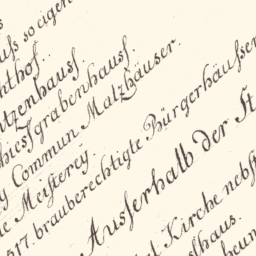 aus so eigen
hthof.
tzenhauss.
htes grabenhauss.
y Commun Matzhäuser.
e Meisterey.
517. brauberechtigte Bürgerhäusser
Ausserhalb der St
Kirche nebst
lhaus.